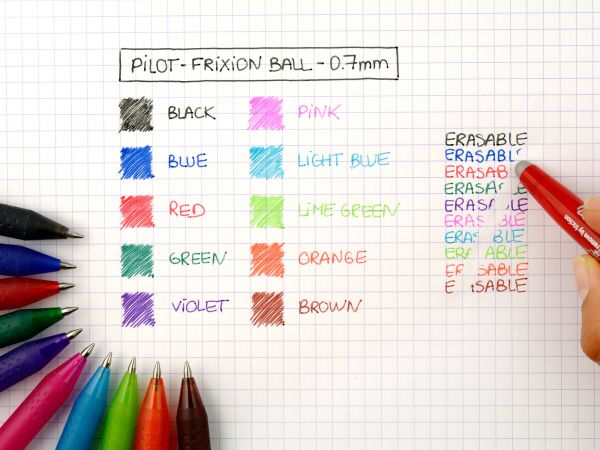 PILOT - FRIXION BALL - 0.7mm
BLACK
BLUE
RED
GREEN
VIOLET
PINK
LIGHT BLUE
LIME GREEN
ORANGE
BROWN
ERASABLE
ERASABL
ERASAB
ERASA LE
ERASA LE
ERASA BLE
ERAS BLE
ERA ABLE
ER SABLE
E SABLE
remove by friction